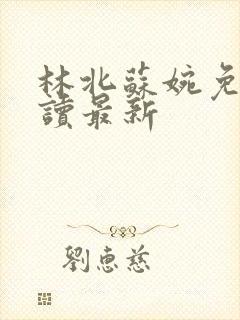 林北蘇婉免
讀最新
劉惠慈